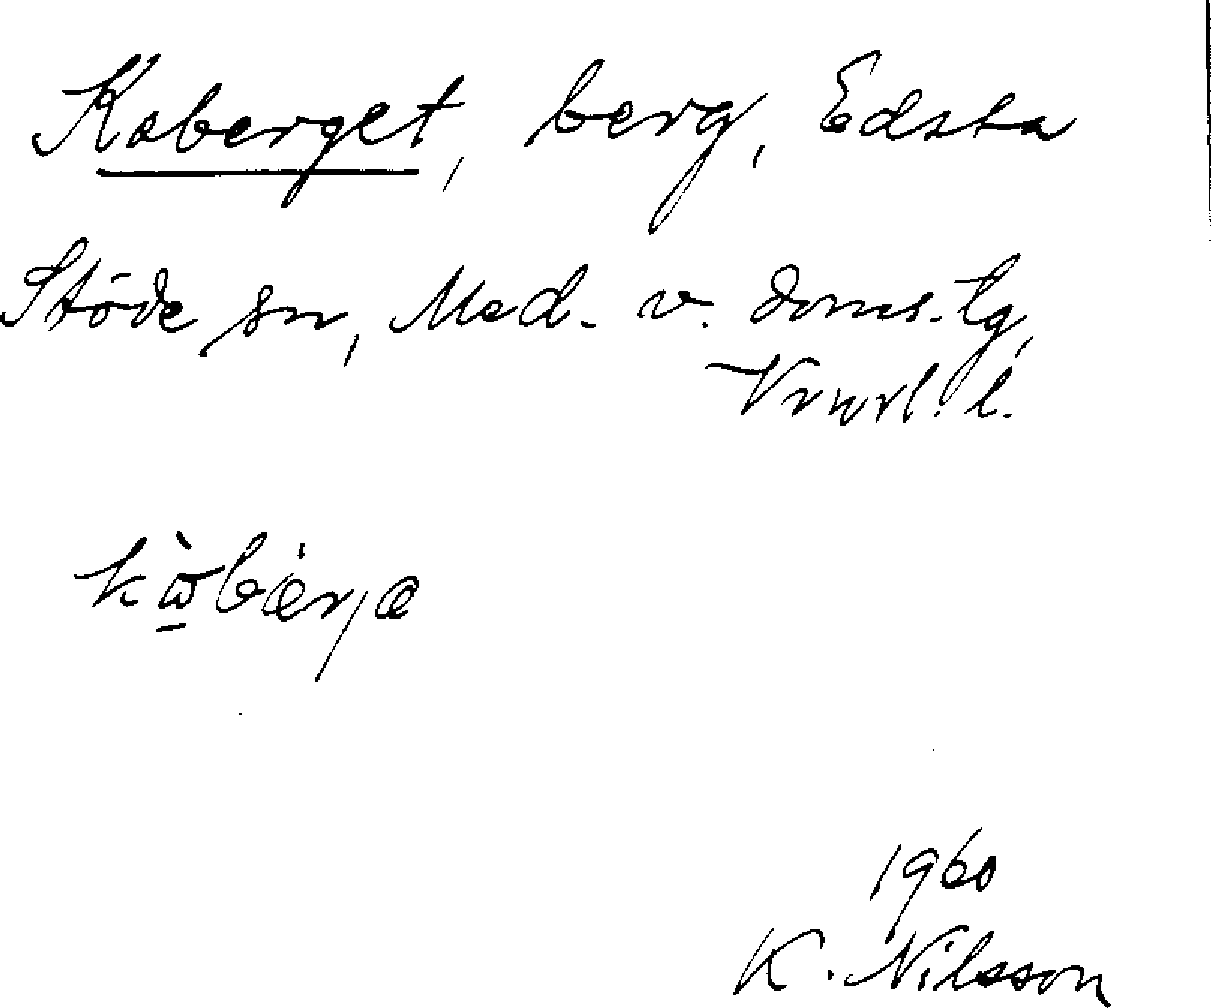 Koberget, berg, Edsta
Stöde sn, Med. v. doms.lg,
Vnorl. l.
1960
K. Nilsson